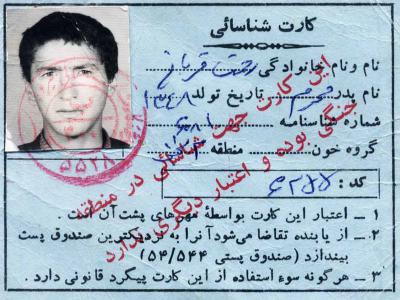 کارت شناسائی
نام ونام خانوادگی: رحمت قربانی
نام پدر: محرم تاریخ تولد ۱۳۴۸
شماره شناسنامه
گروه خون منطقه
کد :
۱ ــ اعتبار این کارت بواسطهٔ مهرهای پشت‌آن است .
۲ ــ از یابنده تقاضا می‌شودآنرا به نزدیکترین صندوق پست
بیندازد (صندوق پستی ۱۵۴/۵۴۴)
۳ ــ هرگونه سوءاستفاده از این کارت پیگرد قانونی دارد .
این کارت جهت شناسائی در منطقه
جنگی بوده و اعتبار دیگری ندارد
۵۵۲۸